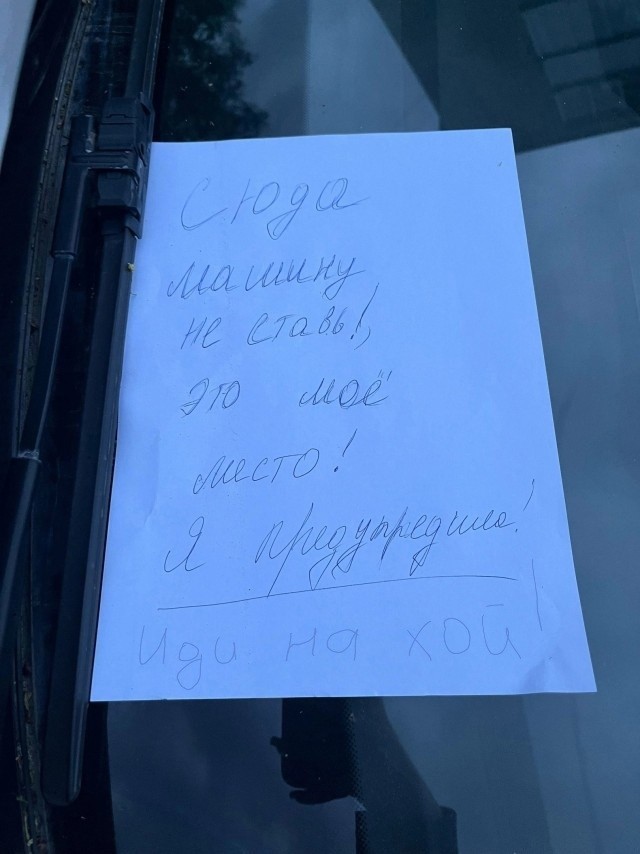 Сюда
машину
не ставь!,
это моё
место!
Я предупредила!
Иди на хой!